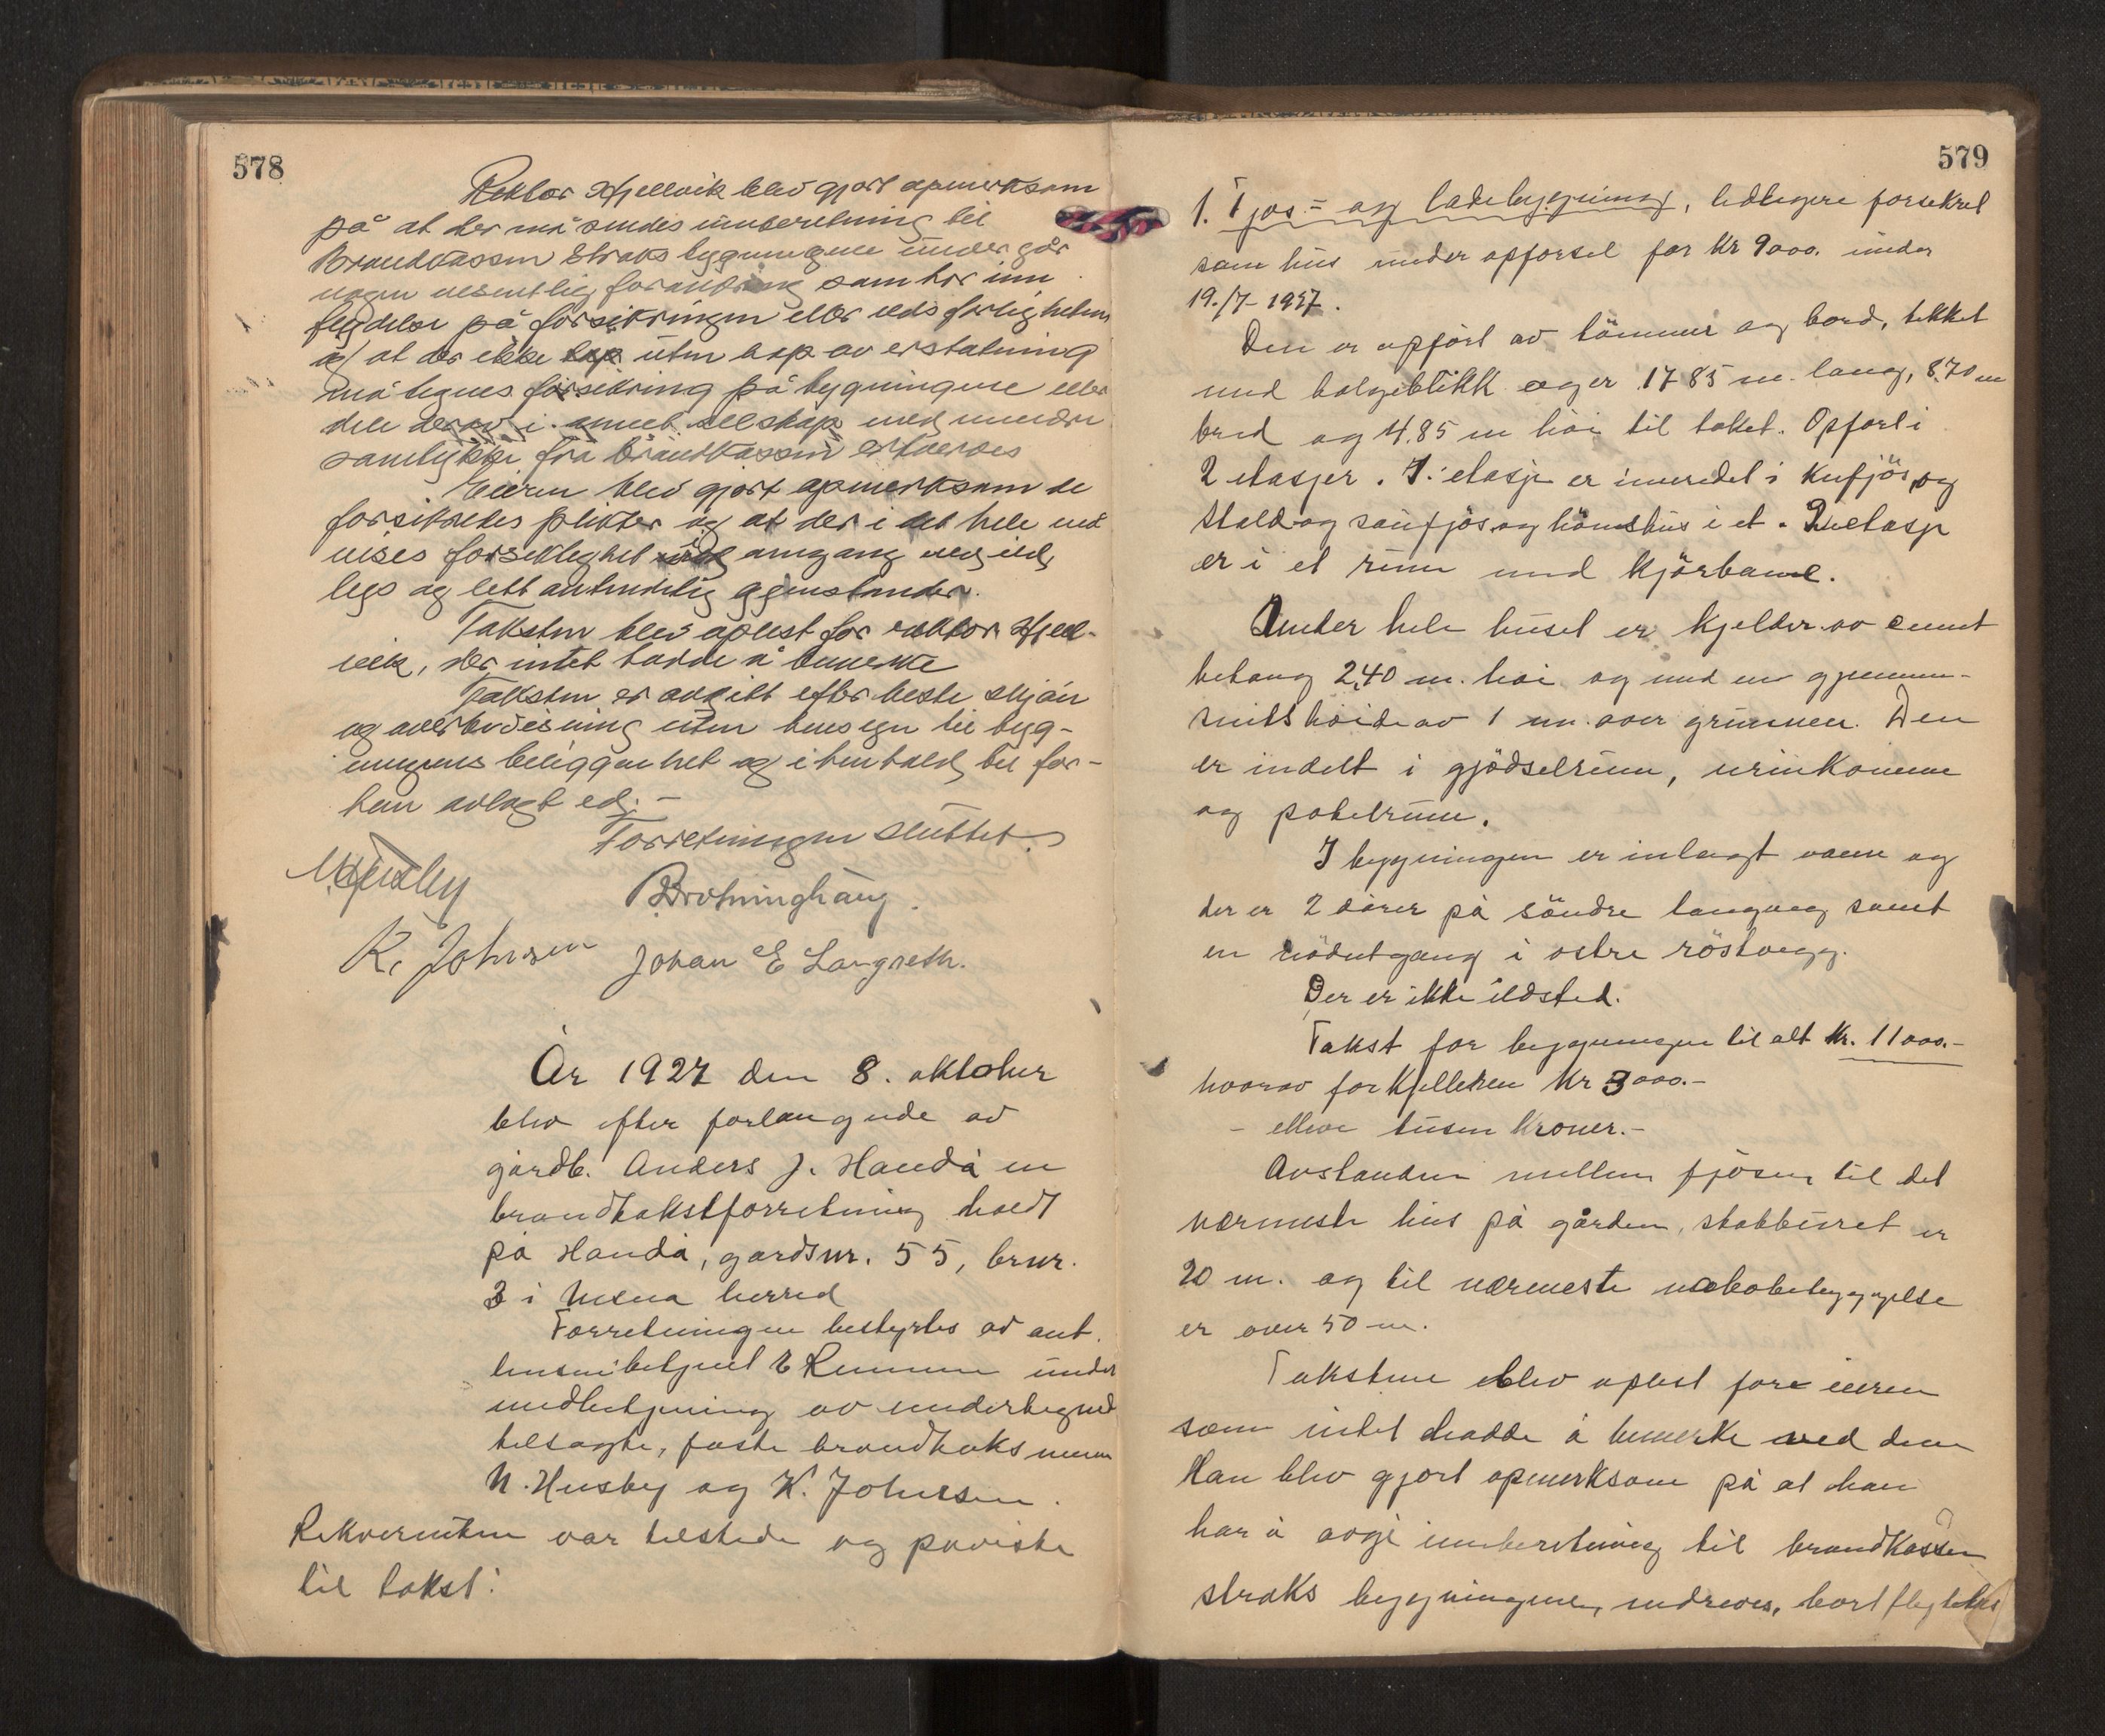 578
Rektor Hjellvik blev gjort opmerksom
på at der må sendes innberetning til
Brandkassen straks bygningene undergår
nogen vesentlig forandring som har inn
flydelse på forsikringen eller ildsfarligheten
og at der ikke uten tap av erstatning
må tegnes forsikring på bygningene eller
dele derav i annet selskap med mindre
samtykke fra brandkassen erhverves
Eieren blev gjort opmerksom de
forsikredes plikter og at der i det hele må
vises forsiktighet omgang med ild,
lys og lett antendelig gjenstander.
Taksten blev oplest for rektor Hjell-
vik, der intet hadde å bemerke
Taksten er avgitt efter beste skjøn
og overbevisning uten hensyn til byg-
ningens beliggenhet og i henhold til for-
hen avlagt ed. -
Forretningen sluttet.
N. Husby
B. Brotninghaug.
K. Johnsen Johan E Langseth.
År 1927 den 8. oktober
blev efter forlangende av
gårdb. Anders J. Handå en
brandtakstforretning holdt
på Handå, gårdsnr. 55, brnr.
3 i herred
Forretningen bestyrtes av aut.
lensm.betjent E under
medbetjening av undertegned
tilsagte, faste brandtaksmenn
N. Husby og K. Johnsen.
Rekvirenten var tilstede og påviste
til takst:
579
1. Fjøs- og ladebygning, tidligere forsikret
som hus under opførsel for kr 9000. under
19./7-1927.
Den er opført av tømmer og bord, tekket
med bølgeblikk og er 17.85 m. lang, 8.70 m
bred og 4.85 m høi til taket. Opført i
2 etasjer. 1. etasje er innredet i kufjøs og
stald og saufjøs og hønshus i et. 2. etasje
er i et rum med kjørbane.
Under hele huset er kjelder av cemnt
betong 2,40 m. høi og med en gjennem-
snitshøide av 1 m. over grunnen. Den
er indelt i gjødselrum, urinkomme
og potetrum.
I bygningen er inlagt vann og
der er 2 dører på søndre langveg samt
en nødutgang i østre røstvegg.
Der er ikke ildsted.
Takst for bygningen til alt kr. 11000.-
hvorav for kjelleren kr 3000.-
- elleve tusen kroner.-
Avstanden mellem fjøsen til det
nærmeste hus på gården, stabburet er
20 m. og til nærmeste nabobebyggelse
er over 50 m.
Taksten blev oplest fore eieren
som intet hadde å bemerke ved den
Han blev gjort opmerksom på at han
har å avgi innberetning til brandkassen
straks bygningene, endreves, bortflyttes